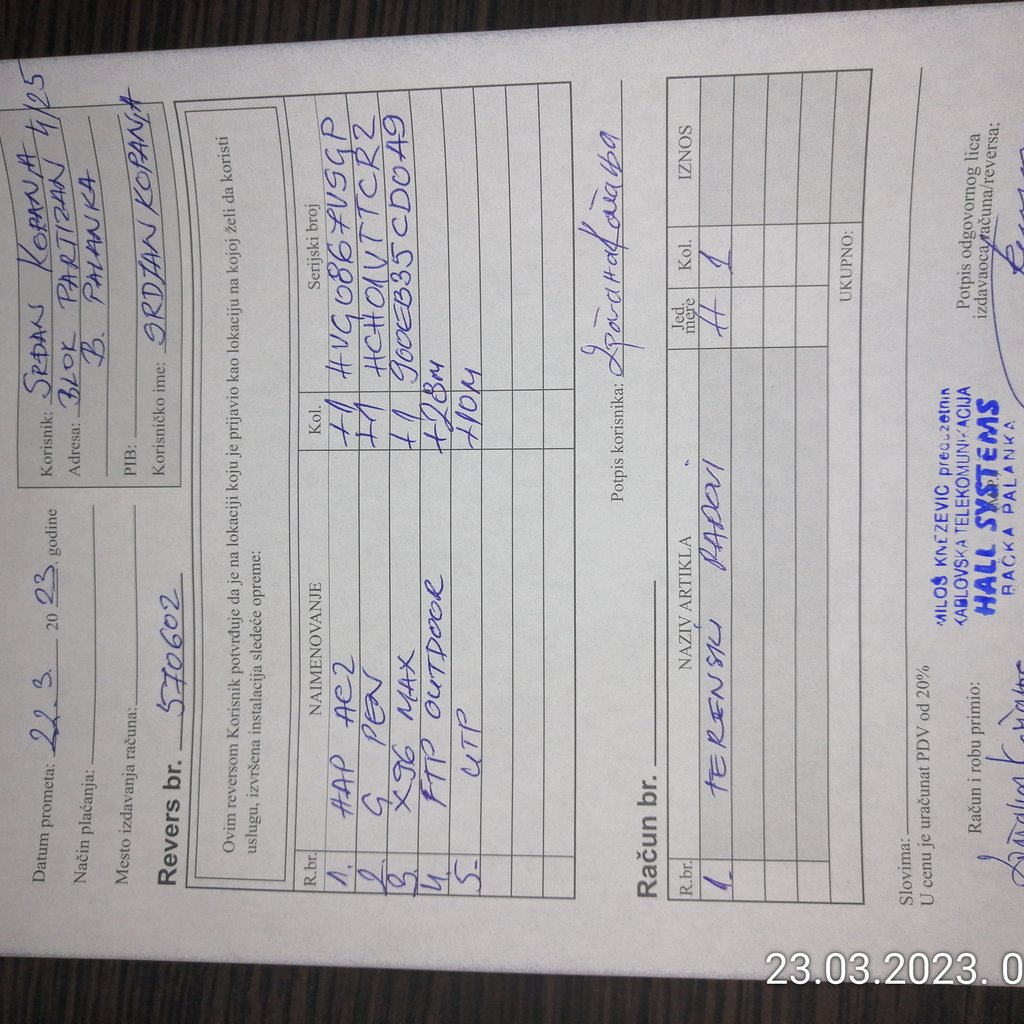 Datum prometa: 22. 3. 2023. godine
Način plaćanja:
Mesto izdavanja računa:
Korisnik: SRĐAN KOPANJA
Adresa: BLOK PARTIZAN 4/25
B. PALANKA
PIB:
Korisničko ime: SRDJANKOPANJA
Revers br. 570602
Ovim reversom Korisnik potvrđuje da je na lokaciji koju je prijavio kao lokaciju na kojoj želi da koristi
uslugu, izvršena instalacija sledeće opreme:
R.br. NAIMENOVANJE Kol. Serijski broj
1. HAP AC2 +1 HVG0867VSGP
2. G PEN +1 HCH01VTTCR2
3. X96 MAX +1 900EB35CD0A9
4. FTP OUTDOOR +28m
5. UTP +10m
Potpis korisnika: Срђан Копања
Račun br.
R.br. NAZIV ARTIKLA Jed. mere Kol. IZNOS
1. TERENSKI RADOVI. H 1
UKUPNO:
Slovima:
U cenu je uračunat PDV od 20%
Račun i robu primio:
MILOŠ KNEŽEVIĆ preduzetnik
KABLOVSKA TELEKOMUNIKACIJA
HALL SYSTEMS
BAČKA PALANKA
Potpis odgovornog lica
izdavaoca računa/reversa:
23.03.2023. 0